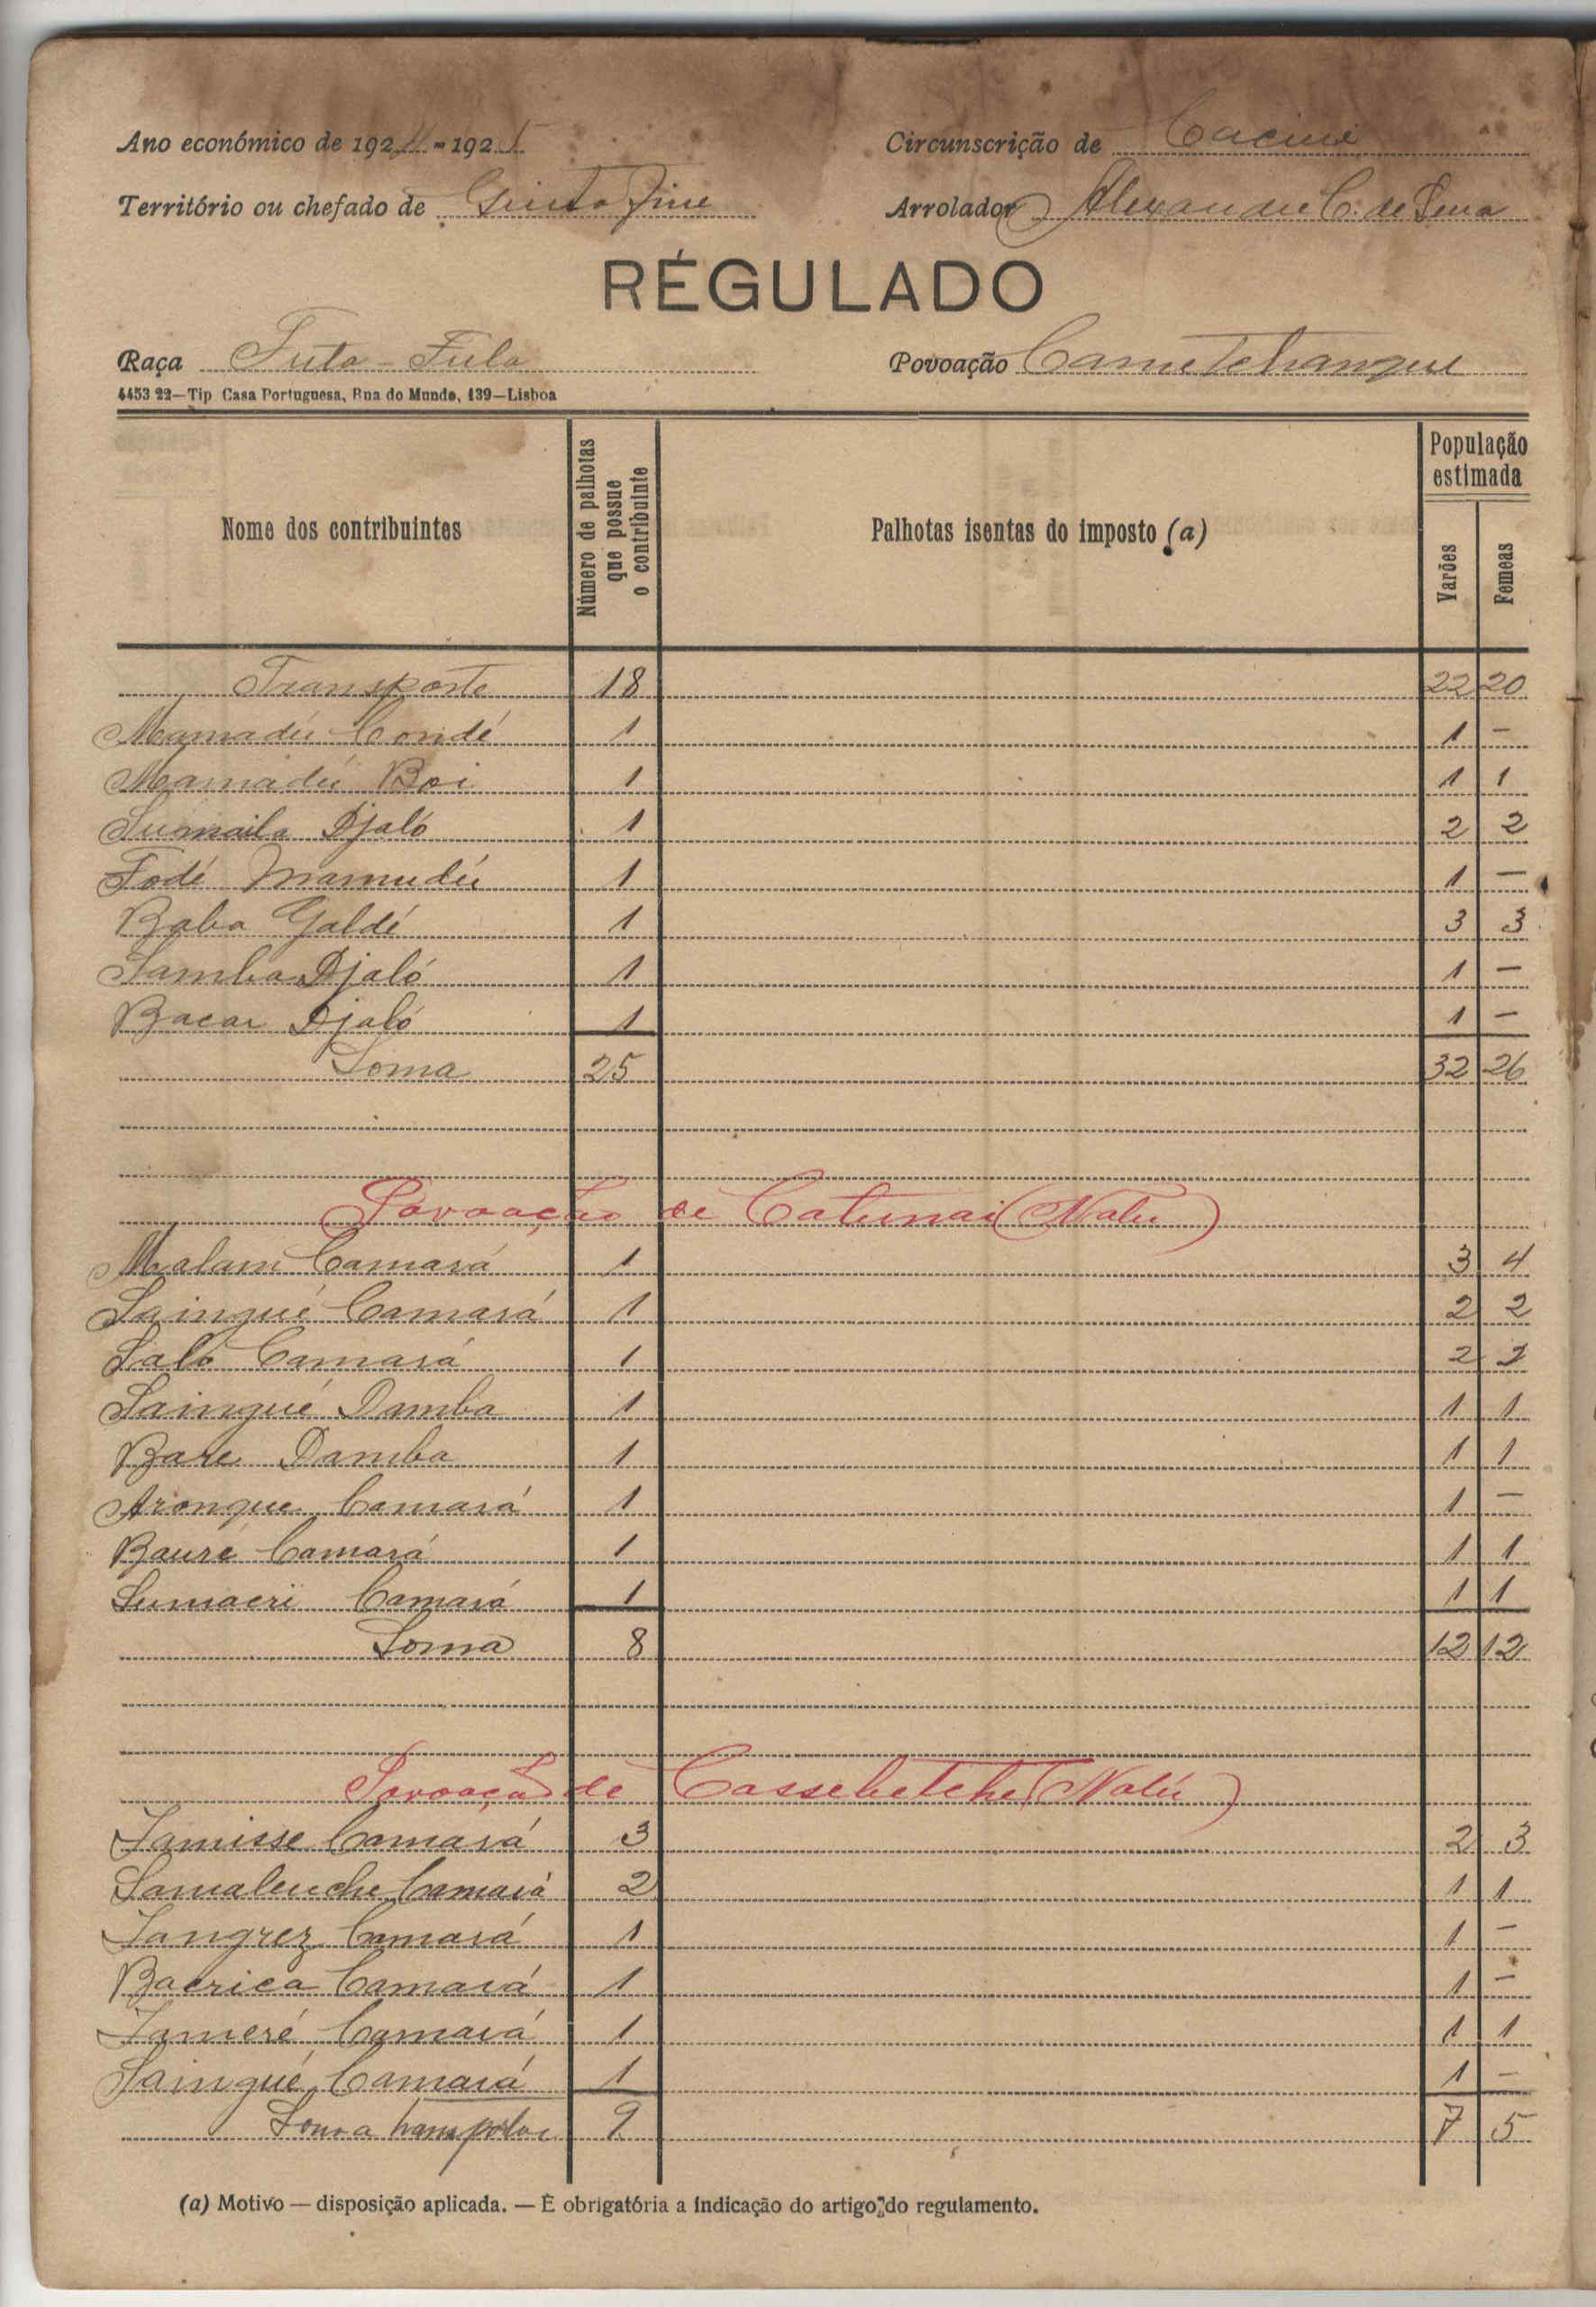 Ano económico de 1924-1925 Circunscrição de Cacine
Território ou chefado de Guinta Fine Arrolador Alexandre C. de Sena
RÉGULADO
Raça Futa-Fula Povoação Cametchangue
4453 22—Tip Casa Portuguesa, Rua do Mundo, 139—Lisboa
Nome dos contribuintes Número de palhotas que possue o contribuinte Palhotas isentas do imposto (a) População estimada Varões Femeas
Transporte 18 22 20
Mamadú Condé 1 1 -
Mamadú Boi 1 1 1
Sumaila Djaló 1 2 2
Fodé Mamudú 1 1 -
Baba Galdé 1 3 3
Samba Djaló 1 1 -
Bacar Djaló 1 1 -
Soma 25 32 26
Povoação de Catunai (Nalú)
Malam Camará 1 3 4
Saingué Camará 1 2 2
Saló Camará 1 2 2
Saingué Damba 1 1 1
Bare Damba 1 1 1
Arongue Camará 1 1 -
Bauré Camará 1 1 1
Sumacri Camará 1 1 1
Soma 8 12 12
Povoação de Cassebetche (Nalú)
Jamisse Camará 3 2 3
Samalenche Camará 2 1 1
Jangrez Camará 1 1 -
Bacrica Camará 1 1 -
Jameré Camará 1 1 1
Saingué Camará 1 1 -
Soma transportar 9 7 5
(a) Motivo — disposição aplicada. — É obrigatória a indicação do artigo do regulamento.